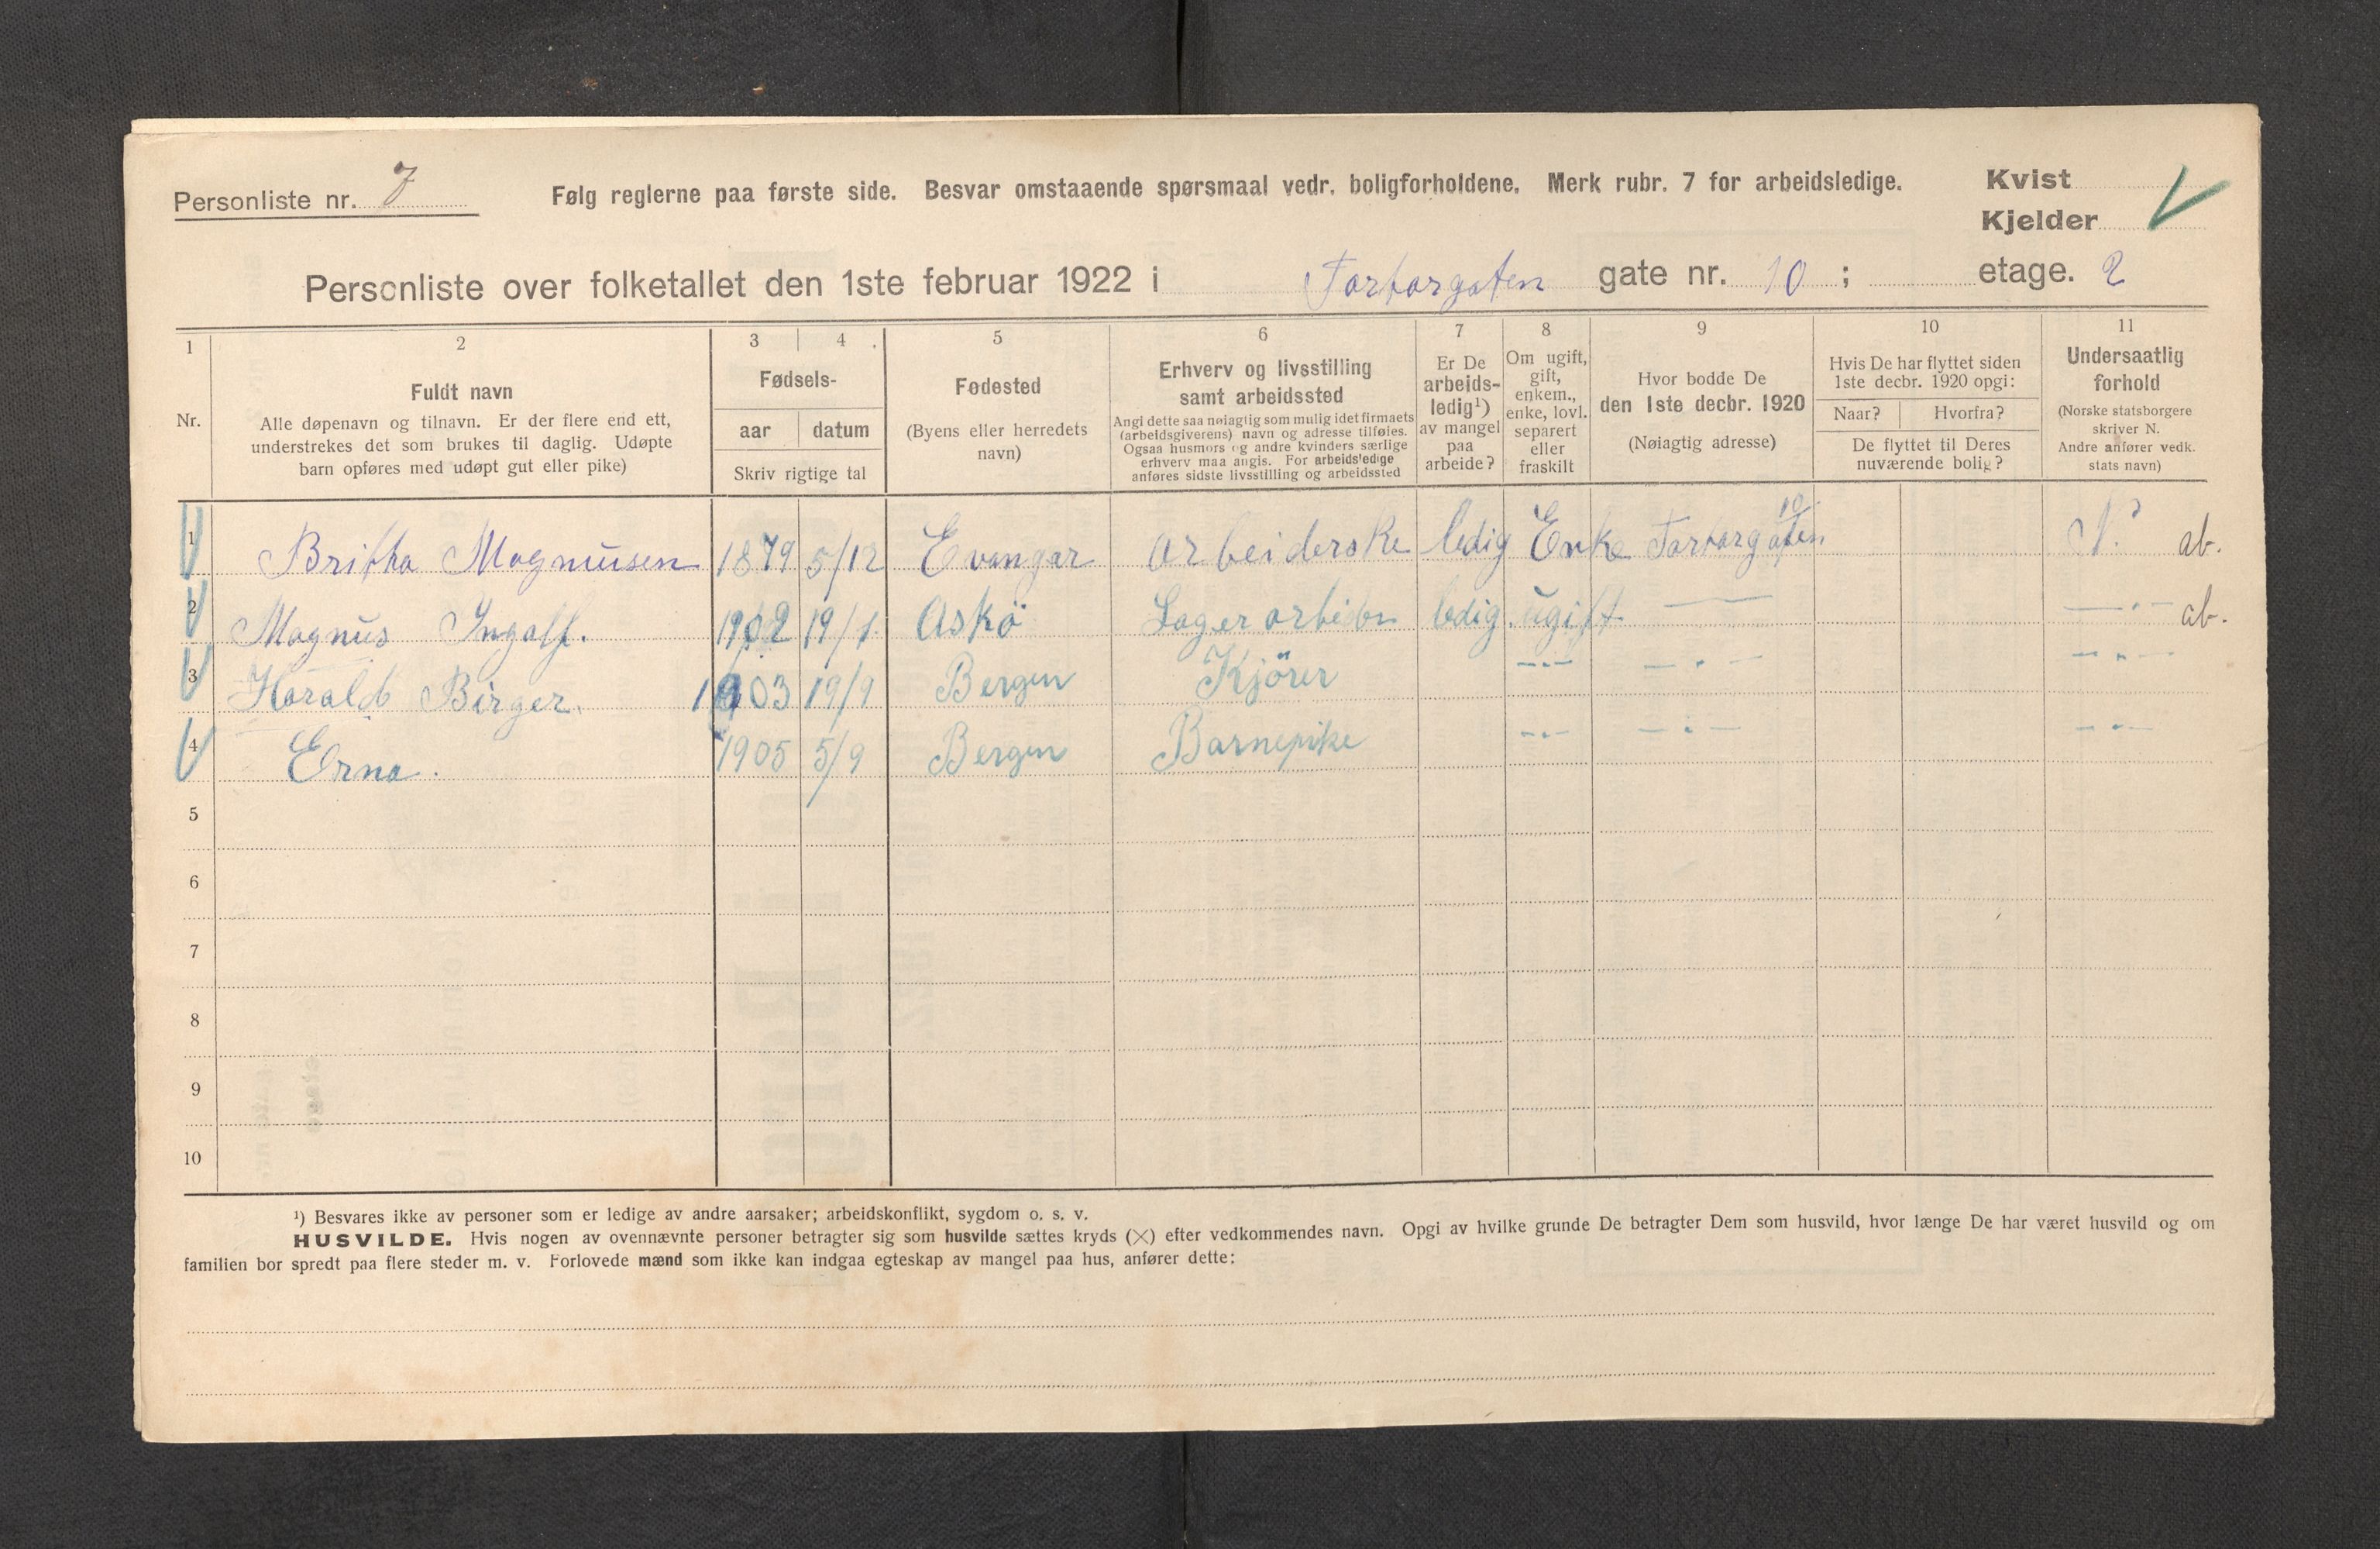 Personliste nr. 7
Følg reglerne paa første side. Besvar omstaaende spørsmaal vedr. boligforholdene. Merk rubr. 7 for arbeidsledige.
Kvist
Kjelder
Personliste over folketallet den 1ste februar 1922 i Tartargaten gate nr. 10 ; etage. 2
1 2 3 4 5 6 7 8 9 10 11
Nr.
Fuldt navn
Alle døpenavn og tilnavn. Er der flere end ett,
understrekes det som brukes til daglig. Udøpte
barn opføres med udøpt gut eller pike)
Fødsels-
aar datum
Skriv rigtige tal
Fødested
(Byens eller herredets
navn)
Erhverv og livsstilling
samt arbeidssted
Angi dette saa nøiagtig som mulig idet firmaets
(arbeidsgiverens) navn og adresse tilføies.
Ogsaa husmors og andre kvinders særlige
erhverv maa angis. For arbeidsledige
anføres sidste livsstilling og arbeidssted
Er De
arbeids-
ledig¹)
av mangel
paa
arbeide?
Om ugift,
gift,
enkem.,
enke, lovl.
separert
eller
fraskilt
Hvor bodde De
den 1ste decbr. 1920
(Nøiagtig adresse)
Hvis De har flyttet siden
1ste decbr. 1920 opgi:
Naar? Hvorfra?
De flyttet til Deres
nuværende bolig?
Undersaatlig
forhold
(Norske statsborgere
skriver N.
Andre anfører vedk.
stats navn)
1 Britha Magnusen 1879 5/12 Evangar Arbeiderske ledig Enke Tartargaten 10 N. ab.
2 Magnus Ingolf. 1902 19/1 Askö Lagerarbeider ledig ugift — —"— ab.
3 Harald Birger. 1903 19/9 Bergen Kjörer —"— —"— —"—
4 Erna. 1905 5/9 Bergen Barnepike —"— —"— —"—
5
6
7
8
9
10
¹) Besvares ikke av personer som er ledige av andre aarsaker; arbeidskonflikt, sygdom o. s. v.
HUSVILDE. Hvis nogen av ovennævnte personer betragter sig som husvilde sættes kryds (×) efter vedkommendes navn. Opgi av hvilke grunde De betragter Dem som husvild, hvor længe De har været husvild og om
familien bor spredt paa flere steder m. v. Forlovede mænd som ikke kan indgaa egteskap av mangel paa hus, anfører dette: